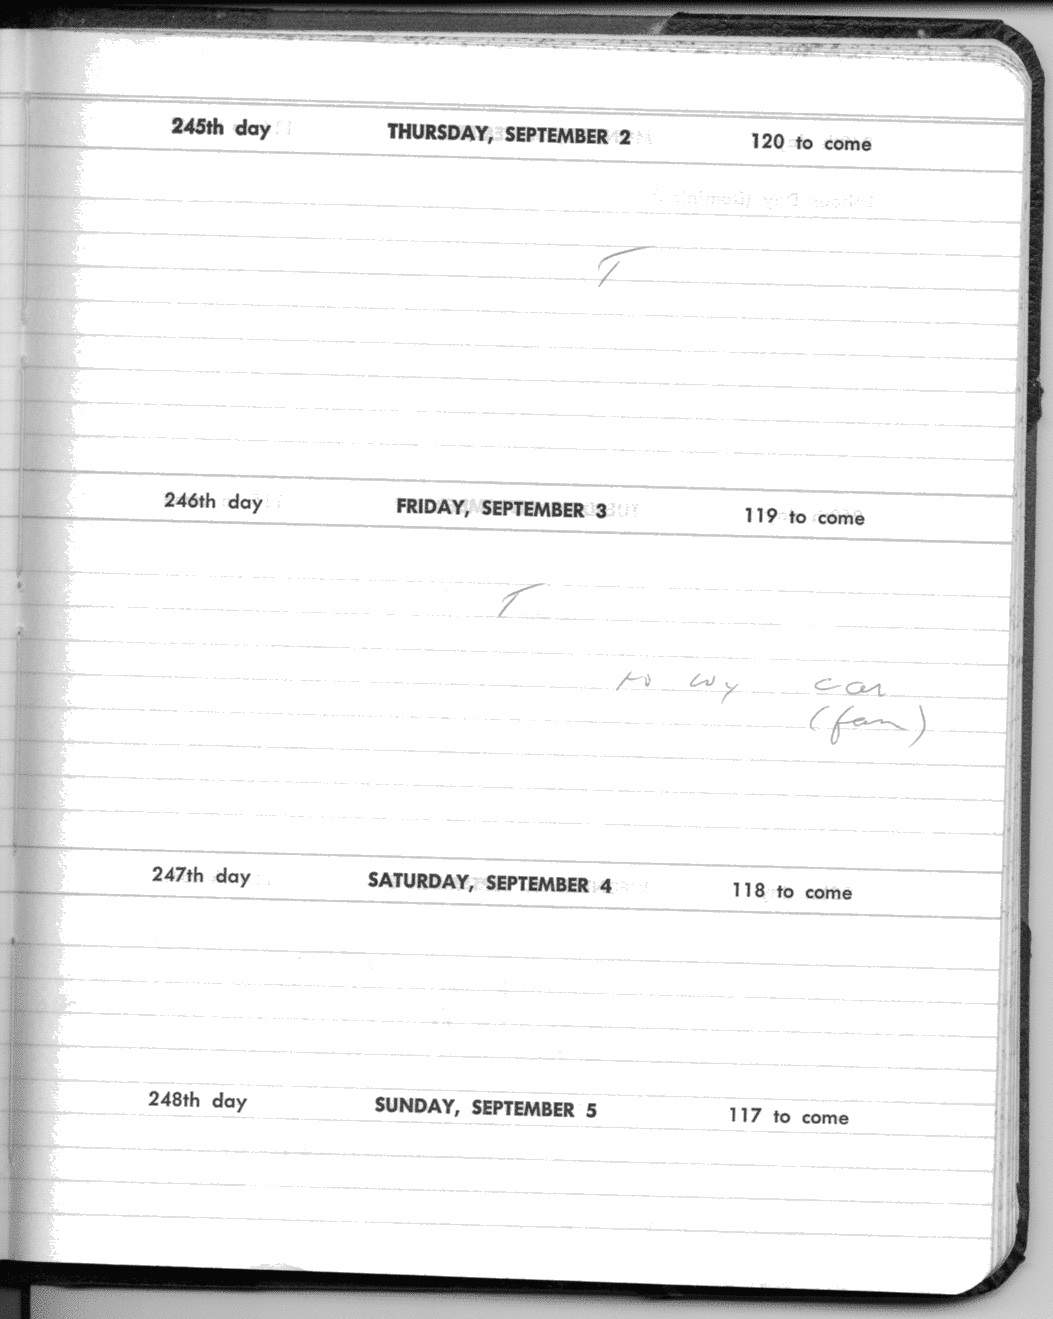 245th day THURSDAY, SEPTEMBER 2 120 to come
T
246th day FRIDAY, SEPTEMBER 3 119 to come
T
to car
(fan)
247th day SATURDAY, SEPTEMBER 4 118 to come
248th day SUNDAY, SEPTEMBER 5 117 to come